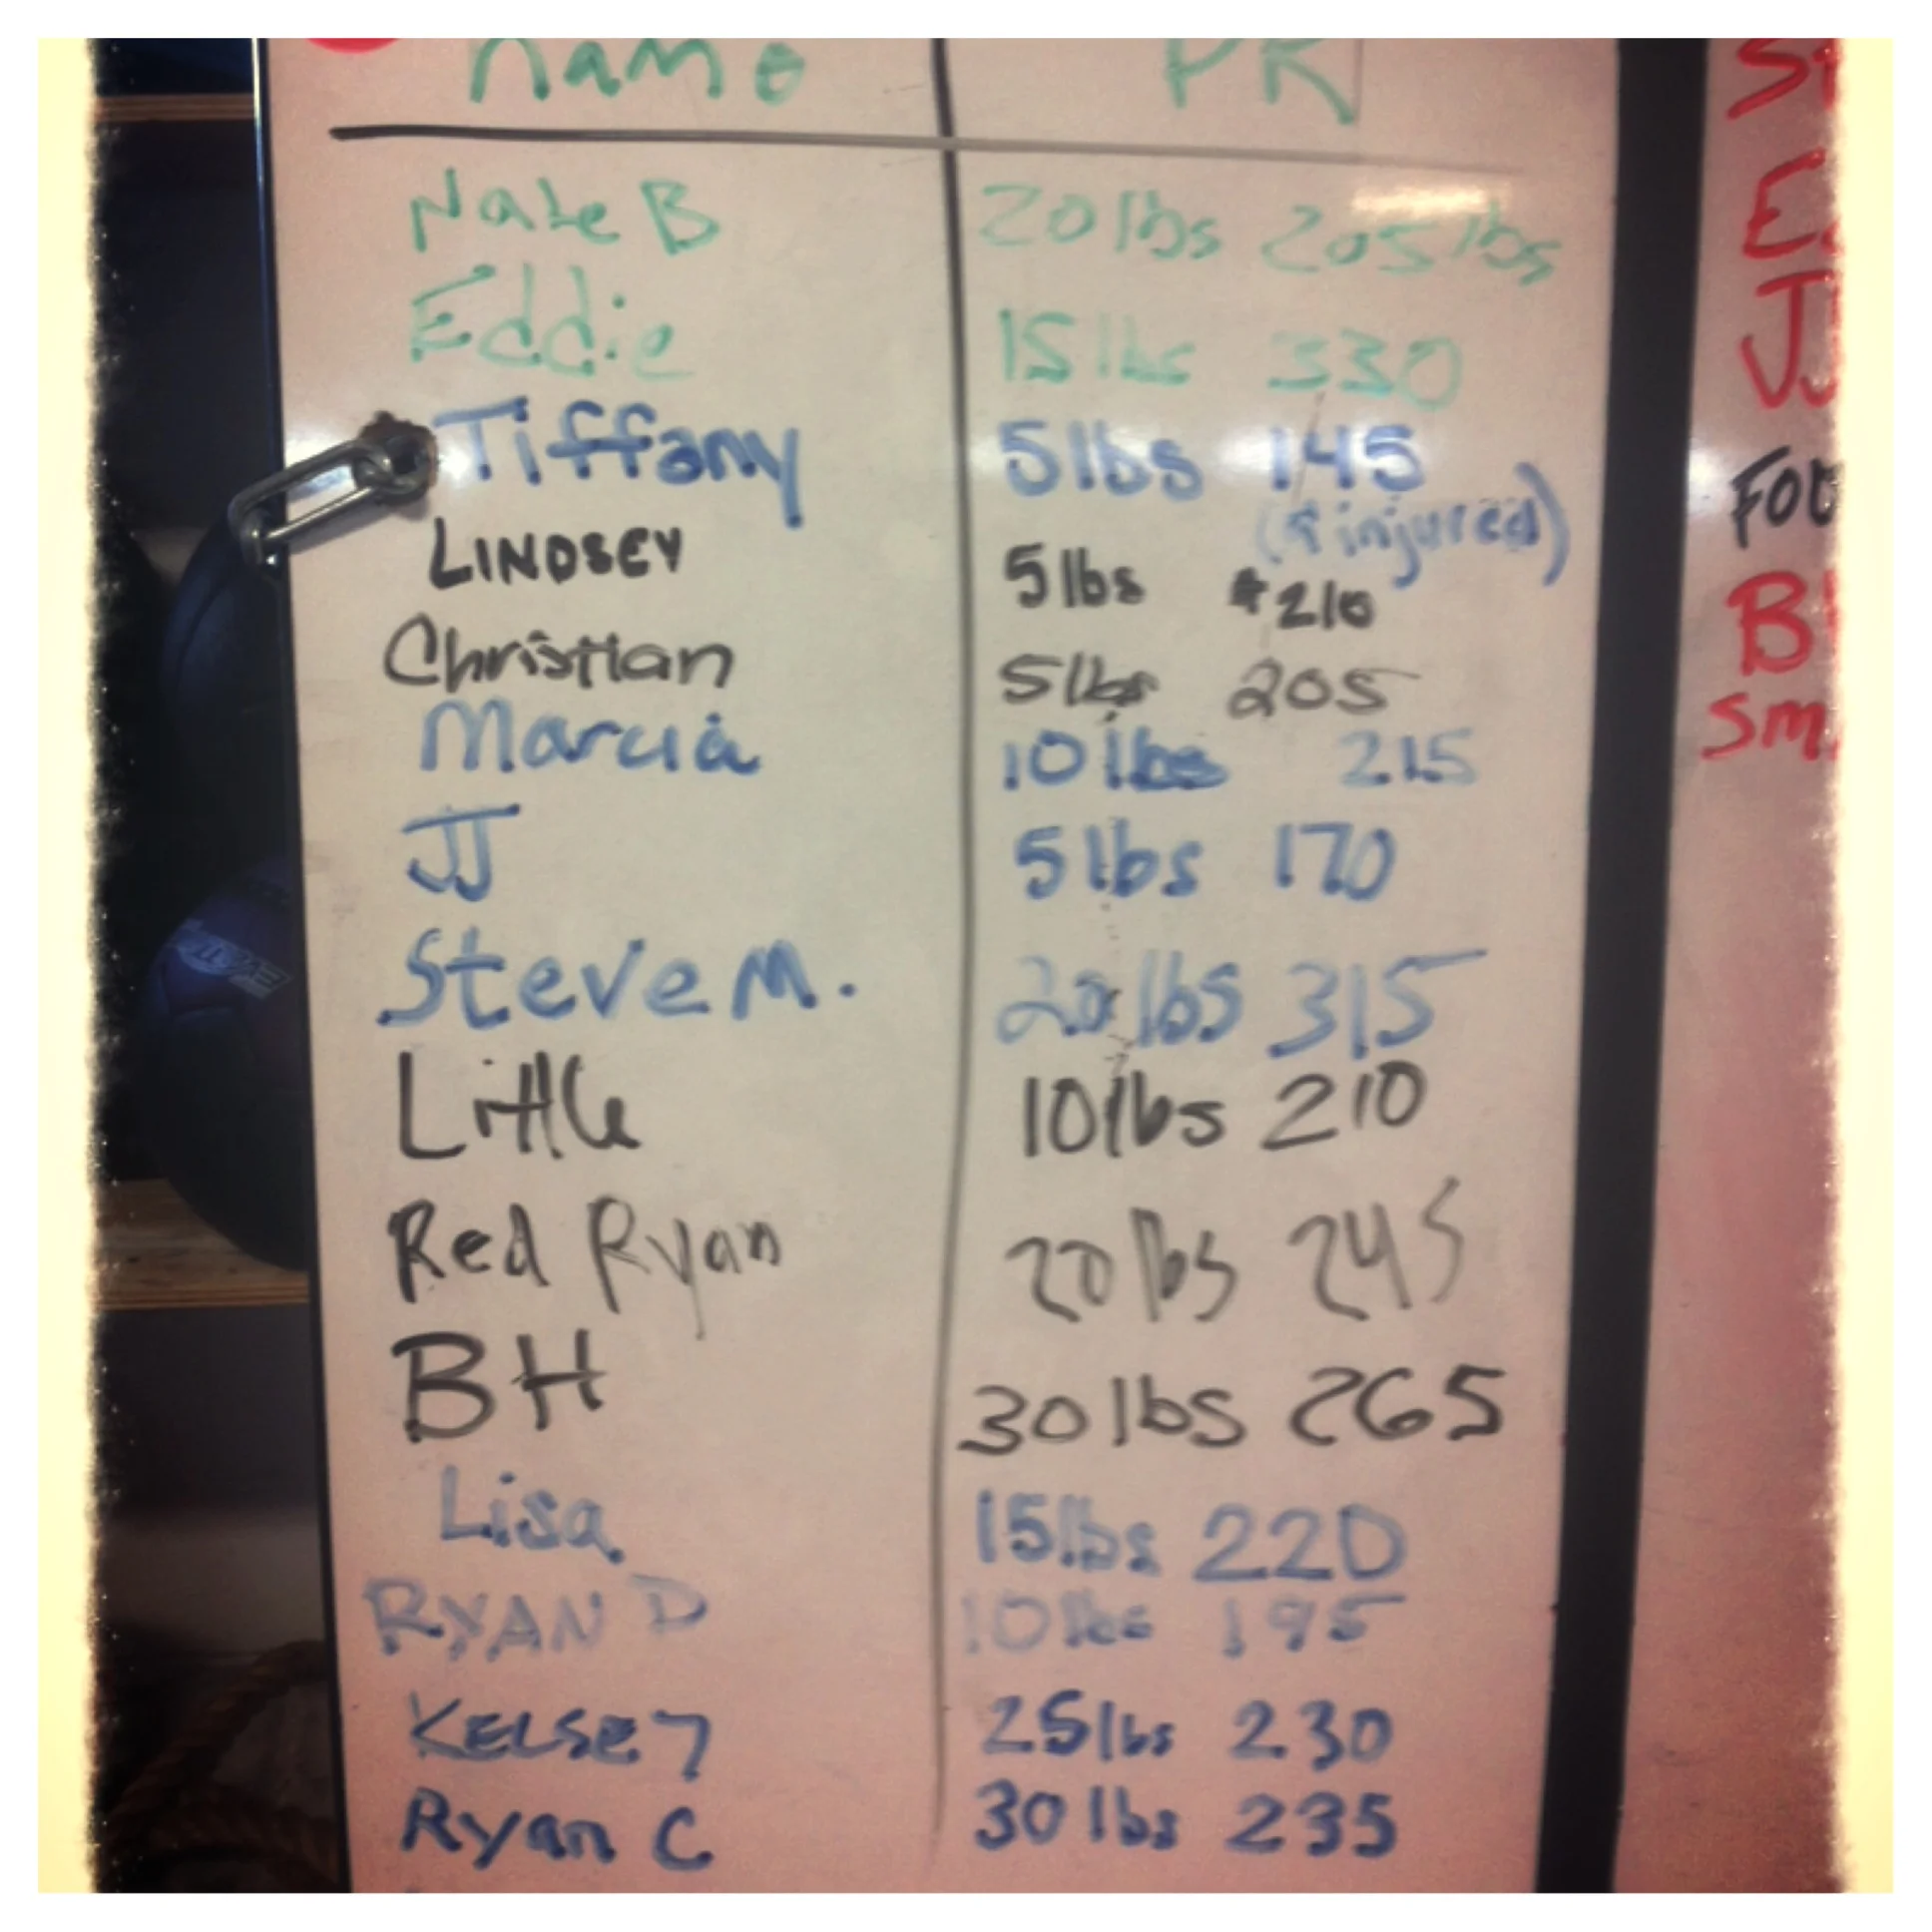 Name PR
Nate B 20 lbs 205 lbs
Eddie 15 lbs 330
Tiffany 5 lbs 145
(& injured)
LINDSEY 5 lbs 210
Christian 5 lbs 205
Marcia 10 lbs 215
JJ 5 lbs 170
Steve M. 20 lbs 315
Little 10 lbs 210
Red Ryan 20 lbs 245
BH 30 lbs 265
Lisa 15 lbs 220
RYAN D 10 lbs 195
KELSEY 25 lbs 230
Ryan C 30 lbs 235